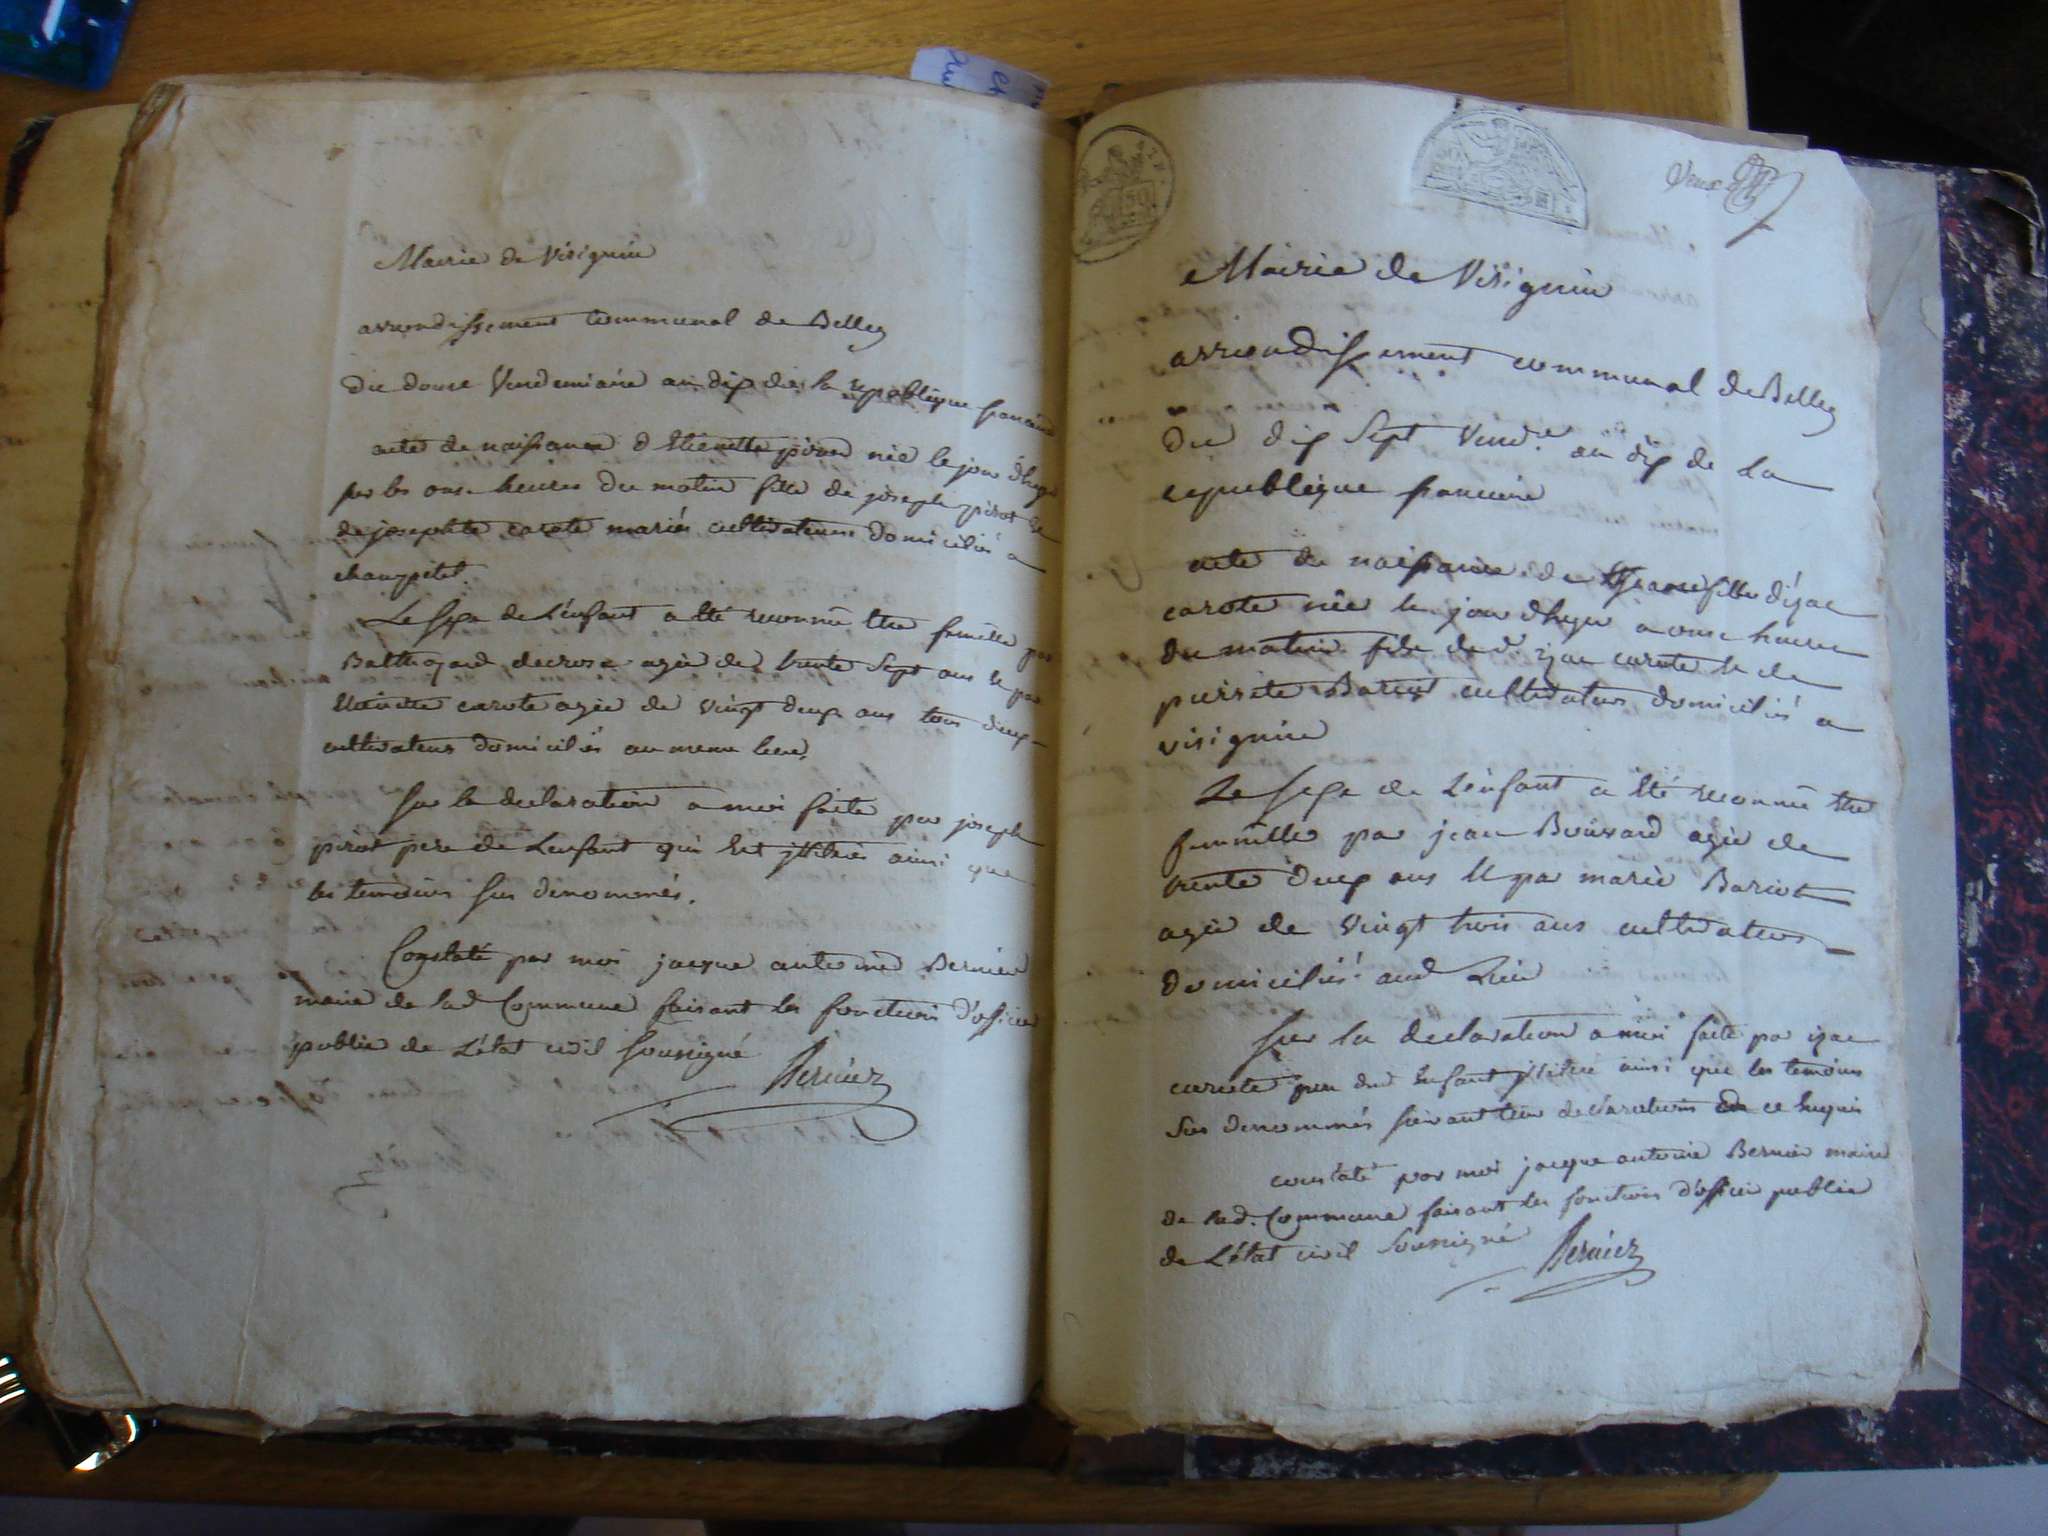 Mairie de Visignin
arrondissement Communal de Belley
Du douze Vendemiaire an dix de la republique francaise
acte de naissance d'Etienette pirod née le jour d'hyer
par les onze heures du matin fille de joseph pirot et
de josephte carote mariés cultivateurs domiciliés a
champitel.
Le sexe de L'enfant a été reconnu être femelle par
Balthazard decrose agée de trente sept ans et par
Etienette carote agée de vingt deux ans tous deux
cultivateurs domiciliés au meme lieu,
sur la declaration a moi faite par joseph
pirot pere de Lenfant qui est illiteré ainsi que
les temoins sus denommés.
Constaté par moi jacque antoine Bernier
maire de lad Commune faisant les fonctions d'officier
public de L'état civil soussigné
Bernier
Mairie de Visignin
arrondissement communal de Belley
Du dix sept Vend.re an dix de la
republique francaise
acte de naissance de fille d'izac
carote née le jour d'hyer a onze heures
du matin fille de d. izac carote et de
pierrette Bariot cultivateurs domiciliés a
visignin
Le sexe de L'enfant a été reconnu être
femelle par jean Bouvard agée de
trente deux ans et par marie Bariot
agée de vingt trois ans cultivateurs
domiciliés aud Lieu
sur la declaration a moi faite par izac
carote pere dud enfant illiteré ainsi que les temoins
sus denommés suivant leur declaration de ce requis
constaté par moi jacque antoine Bernier maire
de lad. Commune faisant les fonctions d'officier public
de L'état civil soussigné
Bernier